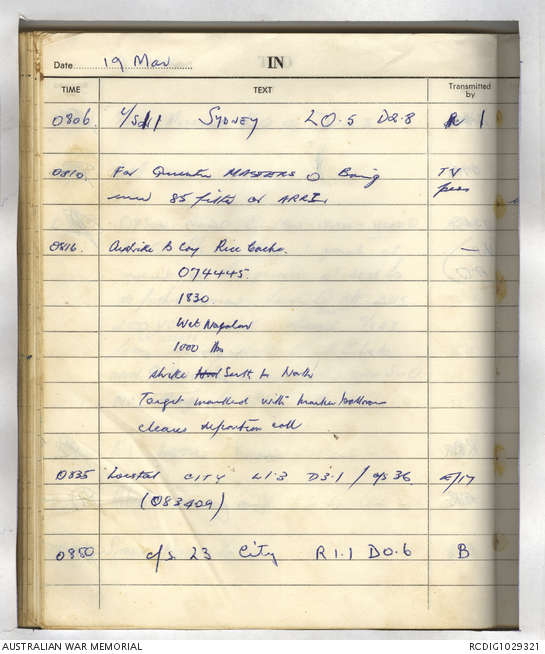 Date 19 Mar IN
TIME TEXT Transmitted by
0806 SYDNEY L0.5 D2.8 1
0810 For Quentin MASTERS O Being
85
0816 Airstrike B Coy Rice Cache. —
074445.
1830.
Wet Napalm
1000 lbs
strike South to North
Target marked with marker balloon
cleares
0835 Locstat CITY L1.3 D3.1 / c/s 36 E/17
(083409)
0850 c/s 23 City R1.1 D0.6 B
AUSTRALIAN WAR MEMORIAL RCDIG1029321